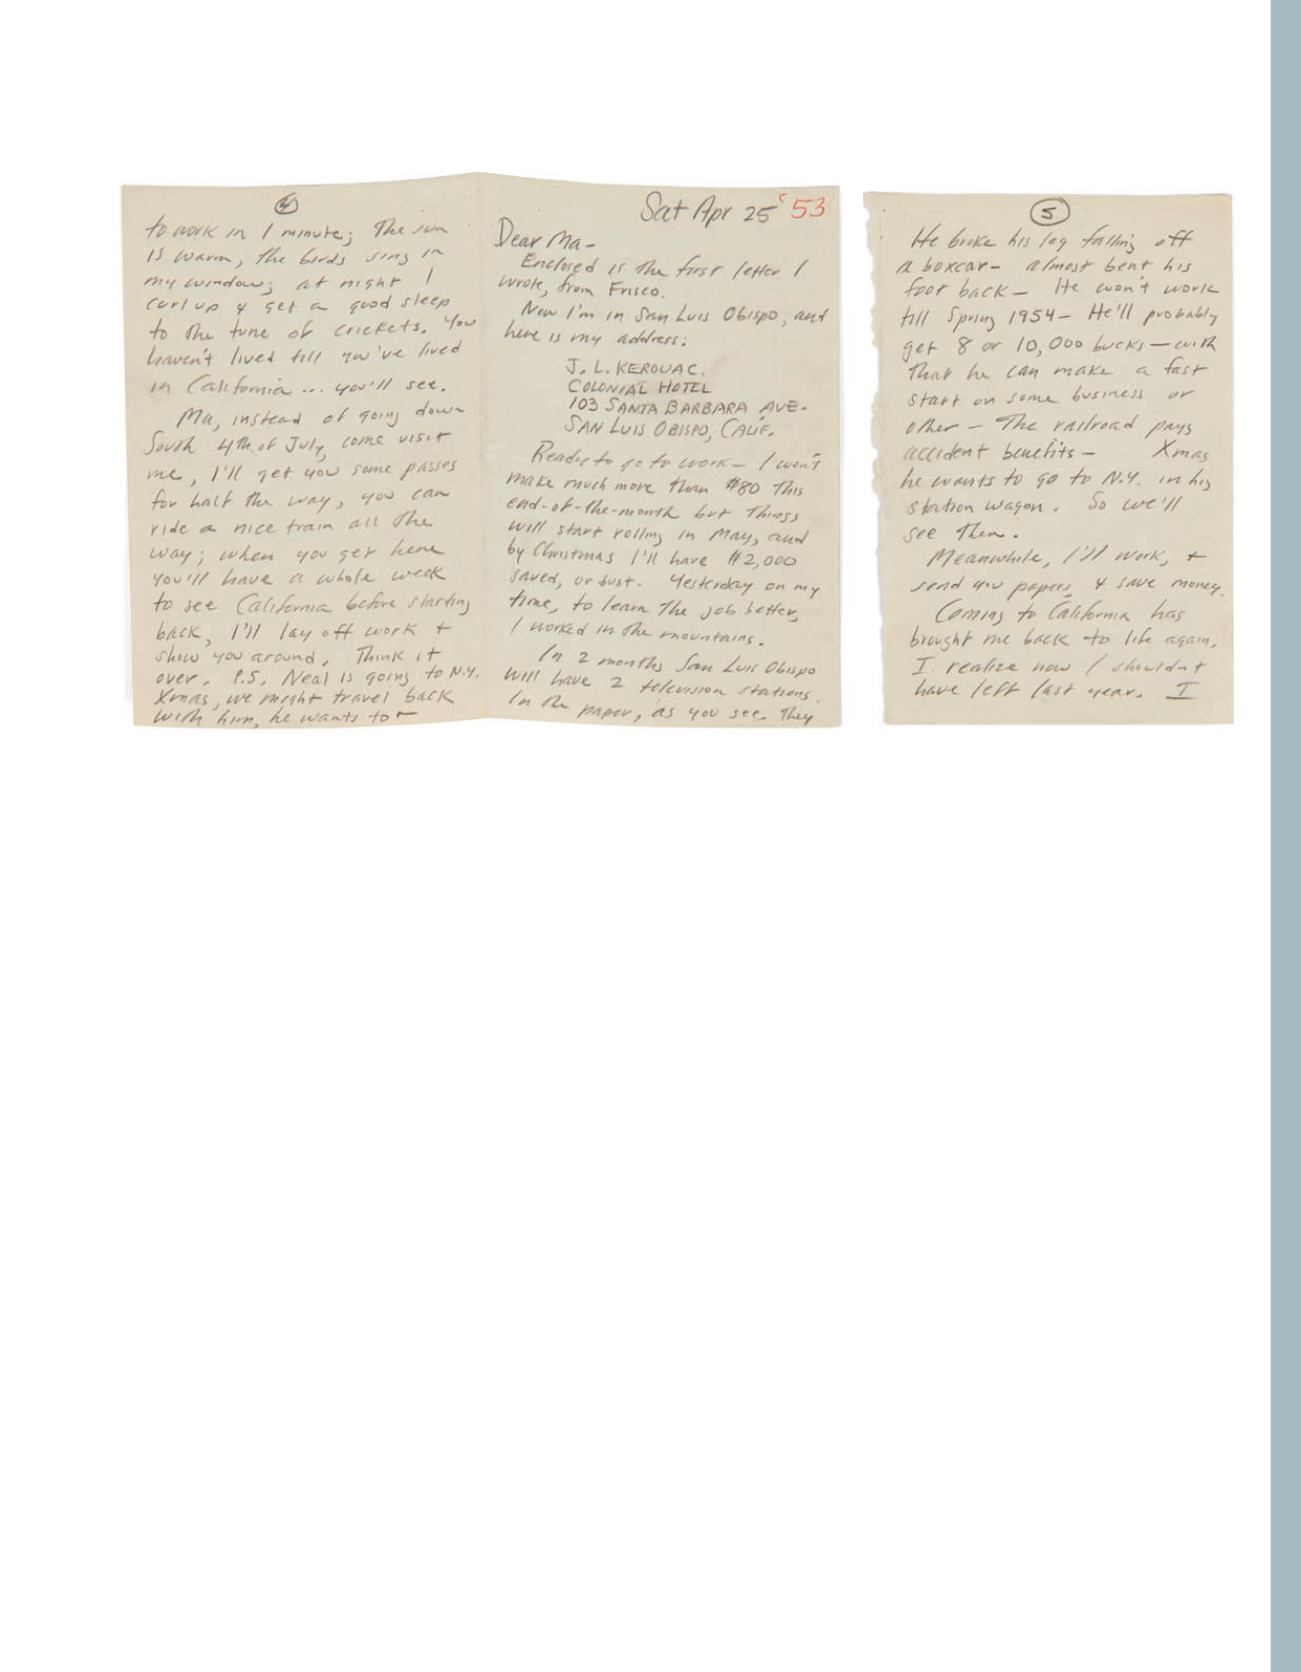 ④
to work in 1 minute; The sun
is warm, the birds sing in
my window; at night I
curl up & get a good sleep
to the tune of crickets. You
haven't lived till you've lived
in California ... you'll see.
Ma, instead of going down
South 4th of July, come visit
me, I'll get you some passes
for half the way, you can
ride a nice train all the
way; when you get here
you'll have a whole week
to see California before starting
back, I'll lay off work +
show you around. Think it
over. P.S. Neal is going to N.Y.
Xmas, we might travel back
with him, he wants to
Sat Apr 25 '53
Dear Ma -
Enclosed is the first letter I
wrote, from Frisco.
Now I'm in San Luis Obispo, and
here is my address:
J. L. KEROUAC.
COLONIAL HOTEL
103 SANTA BARBARA AVE.
SAN LUIS OBISPO, CALIF.
Ready to go to work — I won't
make much more than $80 this
end-of-the-month but things
will start rolling in May, and
by Christmas I'll have $2,000
saved, or bust. Yesterday on my
time, to learn the job better,
I worked in the mountains.
In 2 months San Luis Obispo
will have 2 television stations.
In the paper, as you see. They
⑤
He broke his leg falling off
a boxcar — almost bent his
foot back — He won't work
till Spring 1954 — He'll probably
get 8 or 10,000 bucks — with
that he can make a fast
start on some business or
other — The railroad pays
accident benefits — Xmas
he wants to go to N.Y. in his
station wagon. So we'll
see then.
Meanwhile, I'll work, +
send you papers, & save money.
Coming to California has
brought me back to life again.
I realize now I shouldn't
have left last year. I